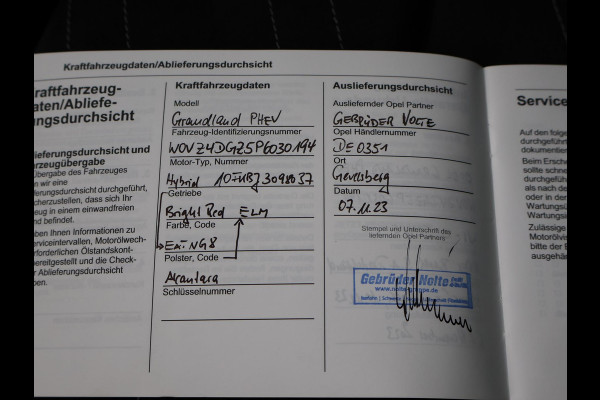 Kraftfahrzeugdaten/Ablieferungsdurchsicht
raftfahrzeug-
aten/Abliefe-
ngsdurchsicht
lieferungsdurchsicht und
rzeugübergabe
Übergabe des Fahrzeugs
n wir eine
erungsdurchsicht durchgeführt,
cherzustellen, dass sich Ihr
eug in einem einwandfreien
nd befindet.
ben Ihnen Informationen zu
Serviceintervallen, Motorölwech-
erforderlichen Ölstandskont-
bereitgestellt und die Check-
r Ablieferungsdurchsicht
ben.
Kraftfahrzeugdaten
Modell
Grandland PHEV
Fahrzeug-Identifizierungsnummer
W0VZ4DGZ5P6030194
Motor-Typ, Nummer
Hybrid
Getriebe
Bright Red ELM
Farbe, Code
EAT NG8
Polster, Code
Alcantara
Schlüsselnummer
Auslieferungsdurchsicht
Ausliefernder Opel Partner
GEBRÜDER NOLTE
Opel Händlernummer
DE0351
Ort
Gevelsberg
Datum
07.11.23
Stempel und Unterschrift des
liefernden Opel Partners
Gebrüder Nolte
Service
Auf den folge
durchgeführt
dokumentier
Beim Ersche
sollte schne
durchgeführ
als nach de
oder in der
Wartungsü
Wartungsi
Zulässige
Motorölvis
bitte der B
ausgehä